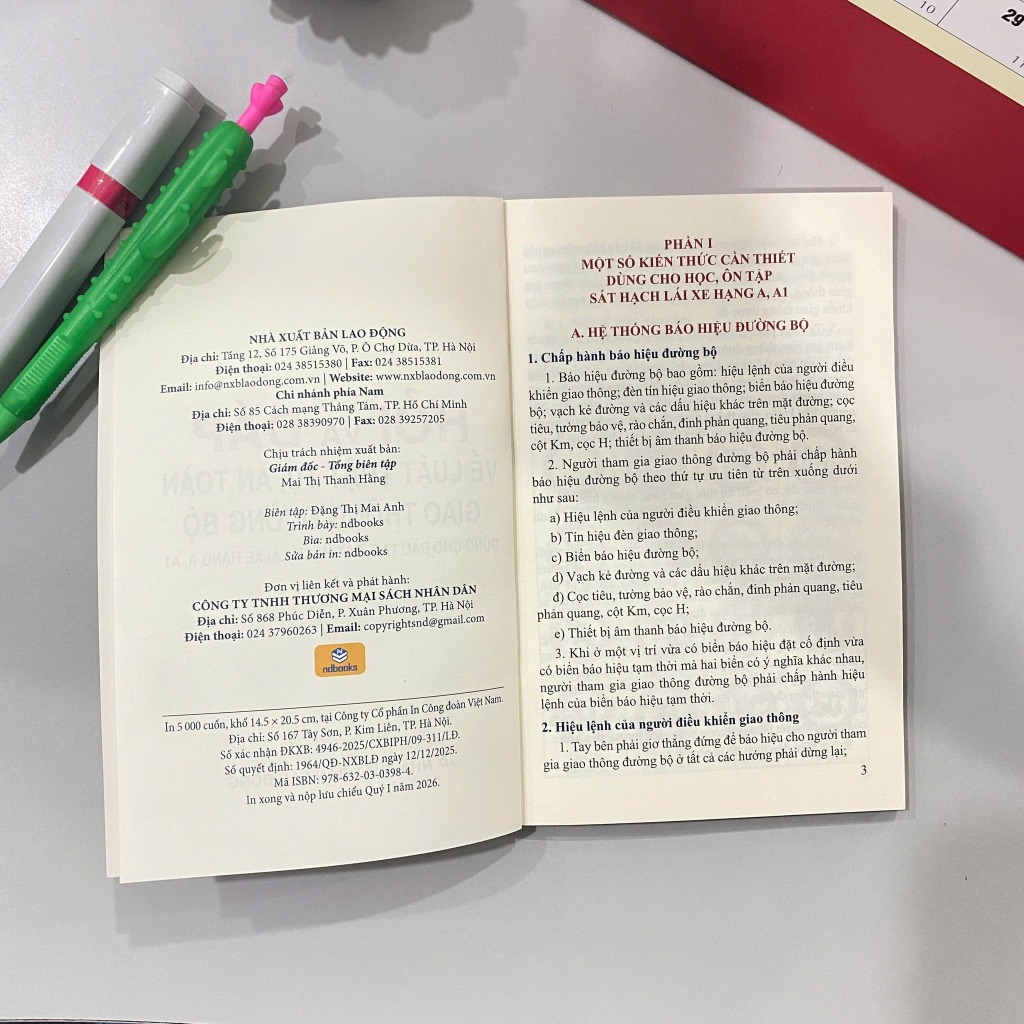 10
29
11
NHÀ XUẤT BẢN LAO ĐỘNG
Địa chỉ: Tầng 12, Số 175 Giảng Võ, P. Ô Chợ Dừa, TP. Hà Nội
Điện thoại: 024 38515380 | Fax: 024 38515381
Email: info@nxblaodong.com.vn | Website: www.nxblaodong.com.vn
Chi nhánh phía Nam
Địa chỉ: Số 85 Cách mạng Tháng Tám, TP. Hồ Chí Minh
Điện thoại: 028 38390970 | Fax: 028 39257205
Chịu trách nhiệm xuất bản:
Giám đốc - Tổng biên tập
Mai Thị Thanh Hằng
Biên tập: Đặng Thị Mai Anh
Trình bày: ndbooks
Bìa: ndbooks
Sửa bản in: ndbooks
Đơn vị liên kết và phát hành:
CÔNG TY TNHH THƯƠNG MẠI SÁCH NHÂN DÂN
Địa chỉ: Số 868 Phúc Diễn, P. Xuân Phương, TP. Hà Nội
Điện thoại: 024 37960263 | Email: copyrightsnd@gmail.com
ndbooks
In 5 000 cuốn, khổ 14.5 × 20.5 cm, tại Công ty Cổ phần In Công đoàn Việt Nam.
Địa chỉ: Số 167 Tây Sơn, P. Kim Liên, TP. Hà Nội.
Số xác nhận ĐKXB: 4946-2025/CXBIPH/09-311/LĐ.
Số quyết định: 1964/QĐ-NXBLĐ ngày 12/12/2025.
Mã ISBN: 978-632-03-0398-4.
In xong và nộp lưu chiểu Quý I năm 2026.
PHẦN I
MỘT SỐ KIẾN THỨC CẦN THIẾT
DÙNG CHO HỌC, ÔN TẬP
SÁT HẠCH LÁI XE HẠNG A, A1
A. HỆ THỐNG BÁO HIỆU ĐƯỜNG BỘ
1. Chấp hành báo hiệu đường bộ
1. Báo hiệu đường bộ bao gồm: hiệu lệnh của người điều
khiển giao thông; đèn tín hiệu giao thông; biển báo hiệu đường
bộ; vạch kẻ đường và các dấu hiệu khác trên mặt đường; cọc
tiêu, tường bảo vệ, rào chắn, đinh phản quang, tiêu phản quang,
cột Km, cọc H; thiết bị âm thanh báo hiệu đường bộ.
2. Người tham gia giao thông đường bộ phải chấp hành
báo hiệu đường bộ theo thứ tự ưu tiên từ trên xuống dưới
như sau:
a) Hiệu lệnh của người điều khiển giao thông;
b) Tín hiệu đèn giao thông;
c) Biển báo hiệu đường bộ;
d) Vạch kẻ đường và các dấu hiệu khác trên mặt đường;
đ) Cọc tiêu, tường bảo vệ, rào chắn, đinh phản quang, tiêu
phản quang, cột Km, cọc H;
e) Thiết bị âm thanh báo hiệu đường bộ.
3. Khi ở một vị trí vừa có biển báo hiệu đặt cố định vừa
có biển báo hiệu tạm thời mà hai biển có ý nghĩa khác nhau,
người tham gia giao thông đường bộ phải chấp hành hiệu
lệnh của biển báo hiệu tạm thời.
2. Hiệu lệnh của người điều khiển giao thông
1. Tay bên phải giơ thẳng đứng để báo hiệu cho người tham
gia giao thông đường bộ ở tất cả các hướng phải dừng lại;
3